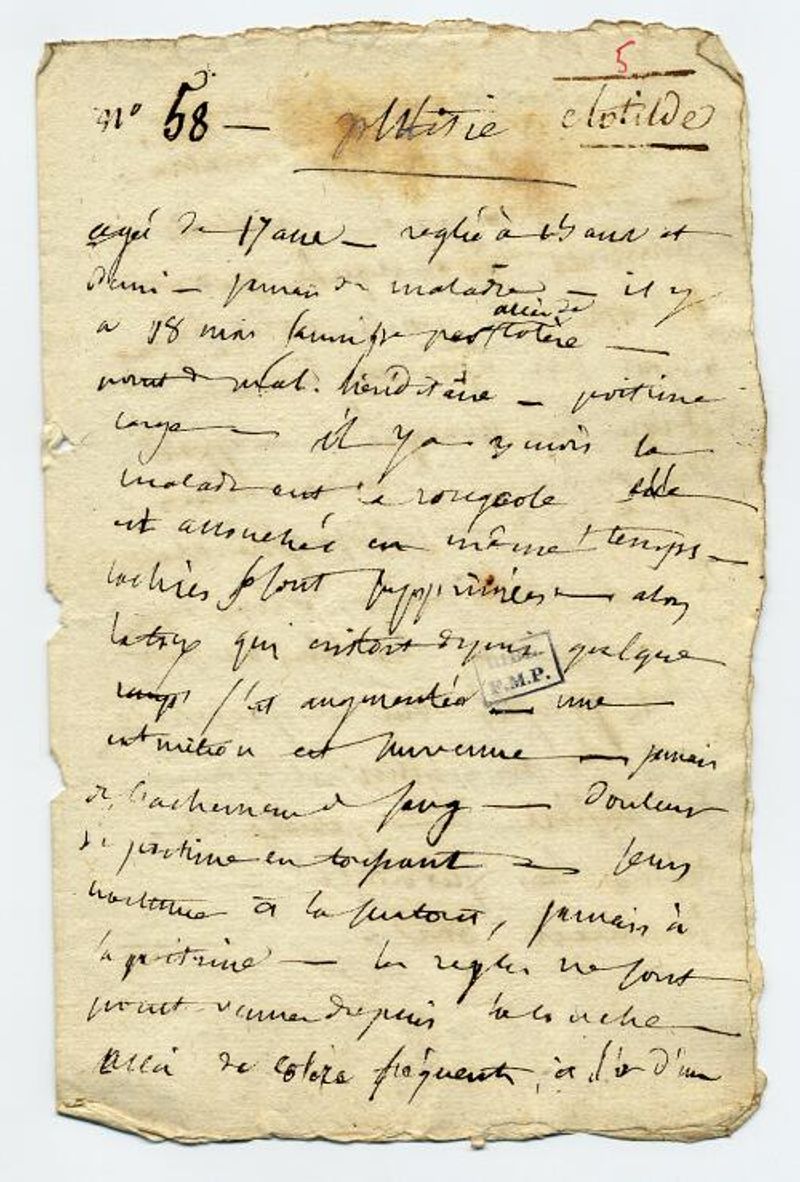 5
N° 58 — phtisie clotilde
agée de 17 ans — reglée à 15 ans et
demi — jamais de maladie — il y
accès de
a 18 mois colère —
point de mal. héréditaire — poitrine
large — il y a mois la
malade eut la rougeole elle
est accouchée en même temps —
lochies se sont supprimées — alors
la toux qui existoit depuis quelque
temps s'est augmentée — une
est survenue — jamais
de crachement de sang — douleur
de poitrine en toussant — sueurs
nocturnes à la surtout, jamais à
la poitrine — les regles ne sont
point venues depuis la couche —
accès de colère fréquents, à d'un
F.M.P.